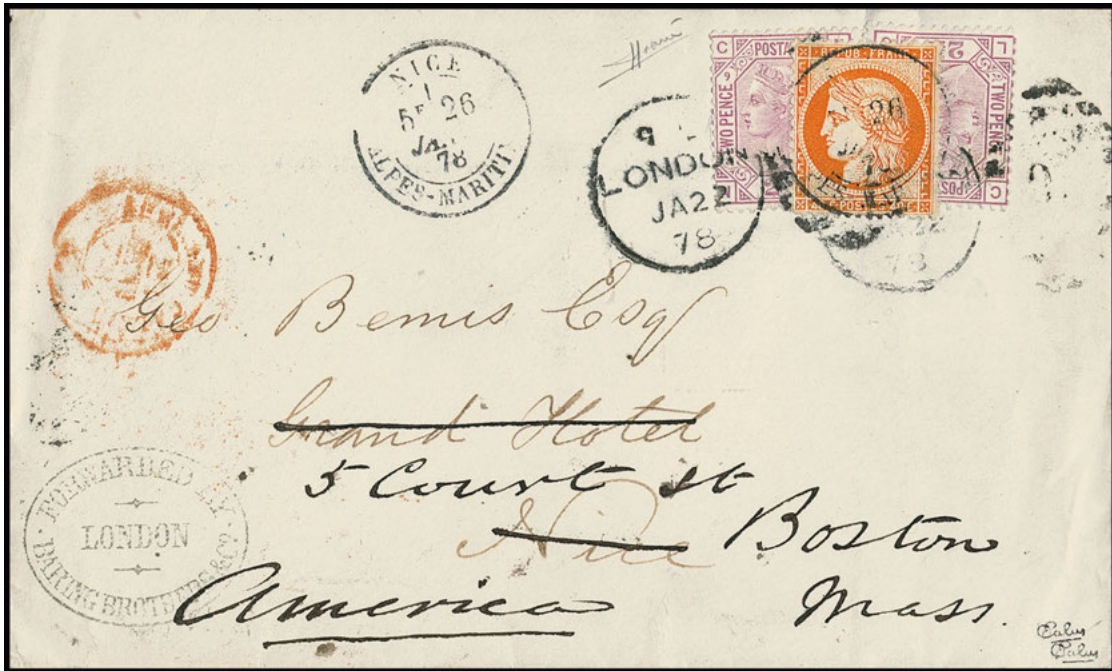 NICE
5E 26
JA..
78
ALPES-MARITI
LONDON
JA22
78
POSTA
TWO PENCE
C
REPUB FRANC
26
POST
TWO PEN
POS
L
C
78
Geo Bemis Esq
Grand Hotel
5 Court St
Nice
Boston
America
Mass.
FORWARDED BY
LONDON
BARING BROTHERS & CO.
Calves
Calves